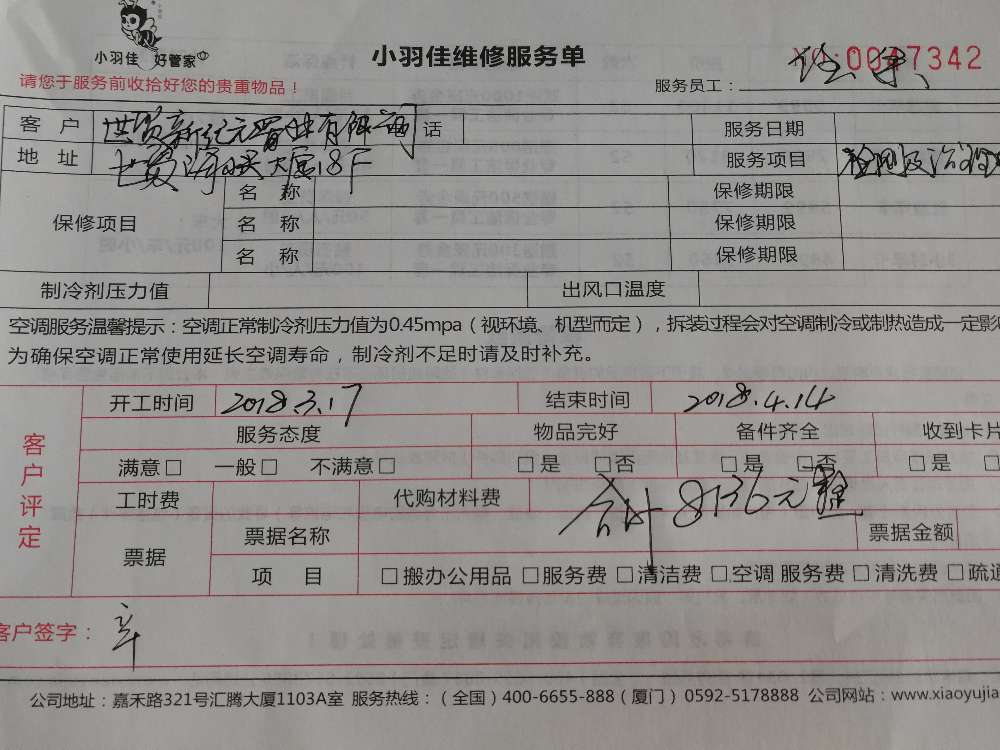 小羽佳 好管家
小羽佳维修服务单
0047342
请您于服务前收拾好您的贵重物品！
服务员工：
客 户 世贸新纪元置业有限公司 话 服务日期
地 址 七贸海峡大厦18F 服务项目 检测及治理
保修项目 名 称 保修期限
名 称 保修期限
名 称 保修期限
制冷剂压力值 出风口温度
空调服务温馨提示：空调正常制冷剂压力值为0.45mpa（视环境、机型而定），拆装过程会对空调制冷或制热造成一定影
为确保空调正常使用延长空调寿命，制冷剂不足时请及时补充。
客户评定
开工时间 2018.3.17 结束时间 2018.4.14
服务态度 物品完好 备件齐全 收到卡片
满意□ 一般□ 不满意□ □是 □否 □是 □否 □是
工时费 代购材料费 合计 8136元整
票据 票据名称 票据金额
项 目 □搬办公用品 □服务费 □清洁费 □空调 服务费 □清洗费 □疏通
客户签字： 辛
公司地址：嘉禾路321号汇腾大厦1103A室 服务热线：（全国）400-6655-888（厦门）0592-5178888 公司网站：www.xiaoyujia